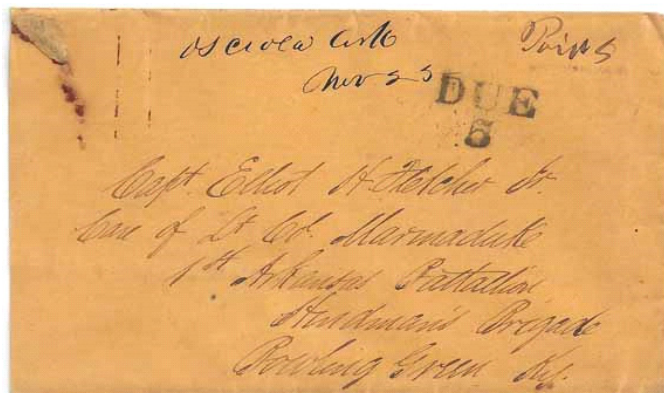 Osceola Ark
Nov 25
Paid 5
DUE
5
Capt. Elliot H Fletcher Jr.
Care of Lt Col. Marmaduke
1st Arkansas Battalion
Hindman's Brigade
Bowling Green Ky.